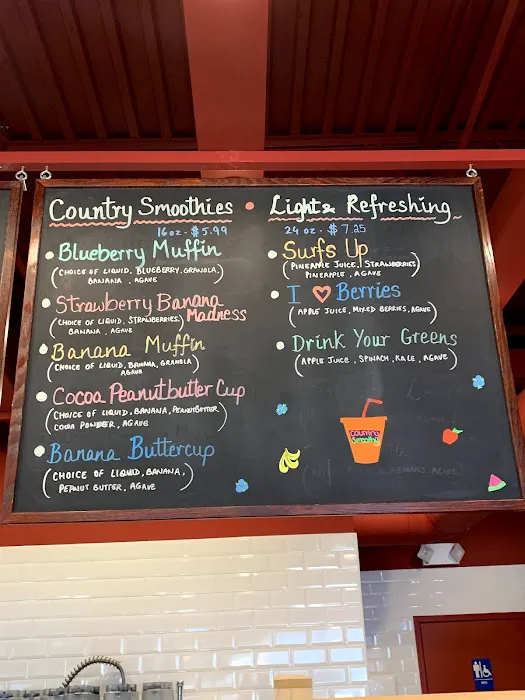 Country Smoothies
16 oz - $5.99
Blueberry Muffin
(CHOICE OF LIQUID, BLUEBERRY, GRANOLA,
BANANA, AGAVE)
Strawberry Banana
Madness
(CHOICE OF LIQUID, STRAWBERRIES,
BANANA, AGAVE)
Banana Muffin
(CHOICE OF LIQUID, BANANA, GRANOLA
AGAVE)
Cocoa Peanutbutter Cup
(CHOICE OF LIQUID, BANANA, PEANUTBUTTER
COCOA POWDER, AGAVE)
Banana Buttercup
(CHOICE OF LIQUID, BANANA,
PEANUT BUTTER, AGAVE)
Light & Refreshing
24 oz - $7.25
Surfs Up
(PINEAPPLE JUICE, STRAWBERRIES
PINEAPPLE, AGAVE)
I ♡ Berries
(APPLE JUICE, MIXED BERRIES, AGAVE)
Drink Your Greens
(APPLE JUICE, SPINACH, KALE, AGAVE)
Country
Smoothies